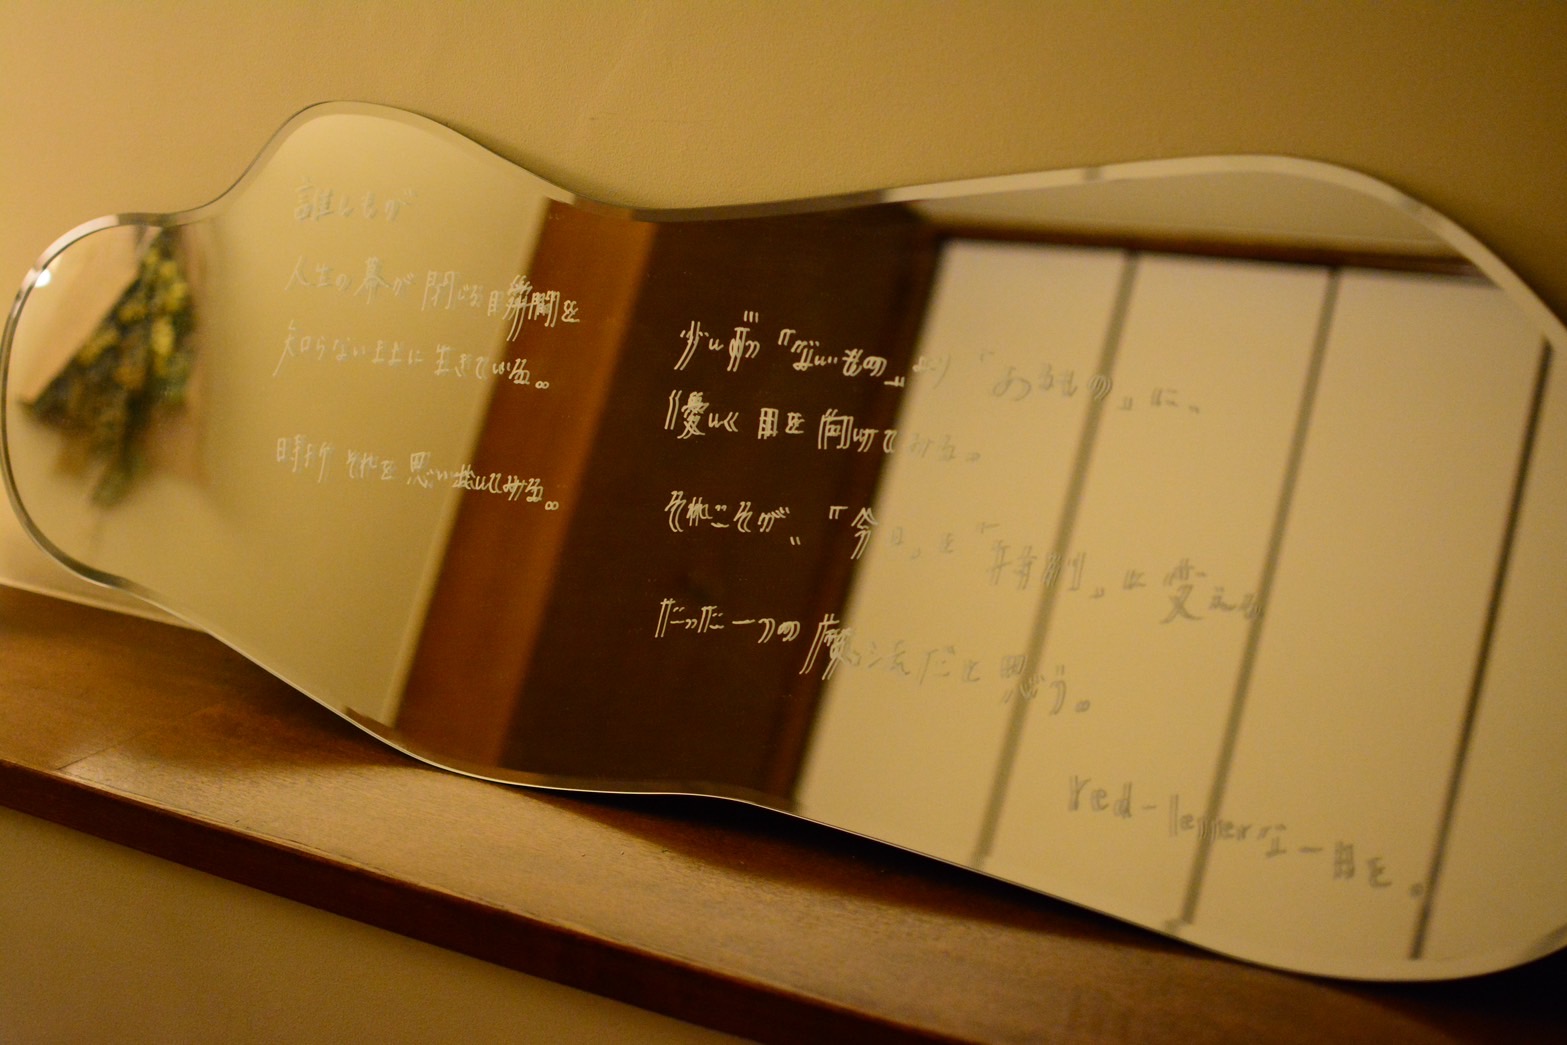 誰しもが
人生の幕が閉じる瞬間を
知らないままに生きている。
時よりそれを思い出してみる。
少し前「ないもの」より「あるもの」に、
優しく目を向けてみる。
それこそが、「今日」を「特別」に変える
たった一つの魔法だと思う。
red-letterな一日を。